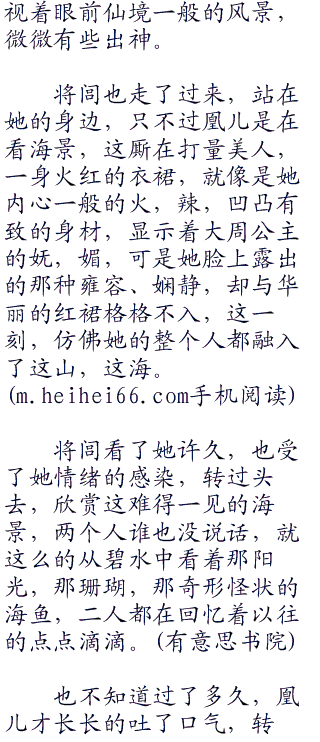 视着眼前仙境一般的风景，
微微有些出神。
将闾也走了过来，站在
她的身边，只不过凰儿是在
看海景，这厮在打量美人，
一身火红的衣裙，就像是她
内心一般的火，辣，凹凸有
致的身材，显示着大周公主
的妩，媚，可是她脸上露出
的那种雍容、娴静，却与华
丽的红裙格格不入，这一
刻，仿佛她的整个人都融入
了这山，这海。
(m.heihei66.com手机阅读)
将闾看了她许久，也受
了她情绪的感染，转过头
去，欣赏这难得一见的海
景，两个人谁也没说话，就
这么的从碧水中看着那阳
光，那珊瑚，那奇形怪状的
海鱼，二人都在回忆着以往
的点点滴滴。(有意思书院)
也不知道过了多久，凰
儿才长长的吐了口气，转